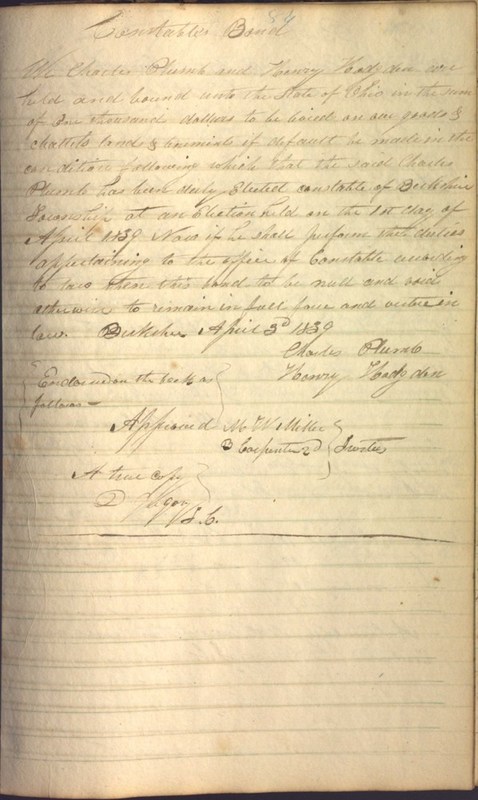 84
Constables Bond
We Charles Plumb and Henry Hodgden are
held and bound unto the State of Ohio in the sum
of One thousand dollars to be levied on our goods &
chattels lands & tenements if default be made in the
condition following which that the said Charles
Plumb has been duly Elected constable of Berkshire
Township at an Election held on the 1st day of
April 1839 Now if he shall perform the duties
appertaining to the office of Constable according
to law then this bond to be null and void
otherwise to remain in full force and virtue in
law. Berkshire April 3d 1839
Charles Plumb
Henry Hodgden
Endorsed on the back as
follows =
Approved M W Miller
B Carpenter 2d Trustees
A true copy
D
T.C.